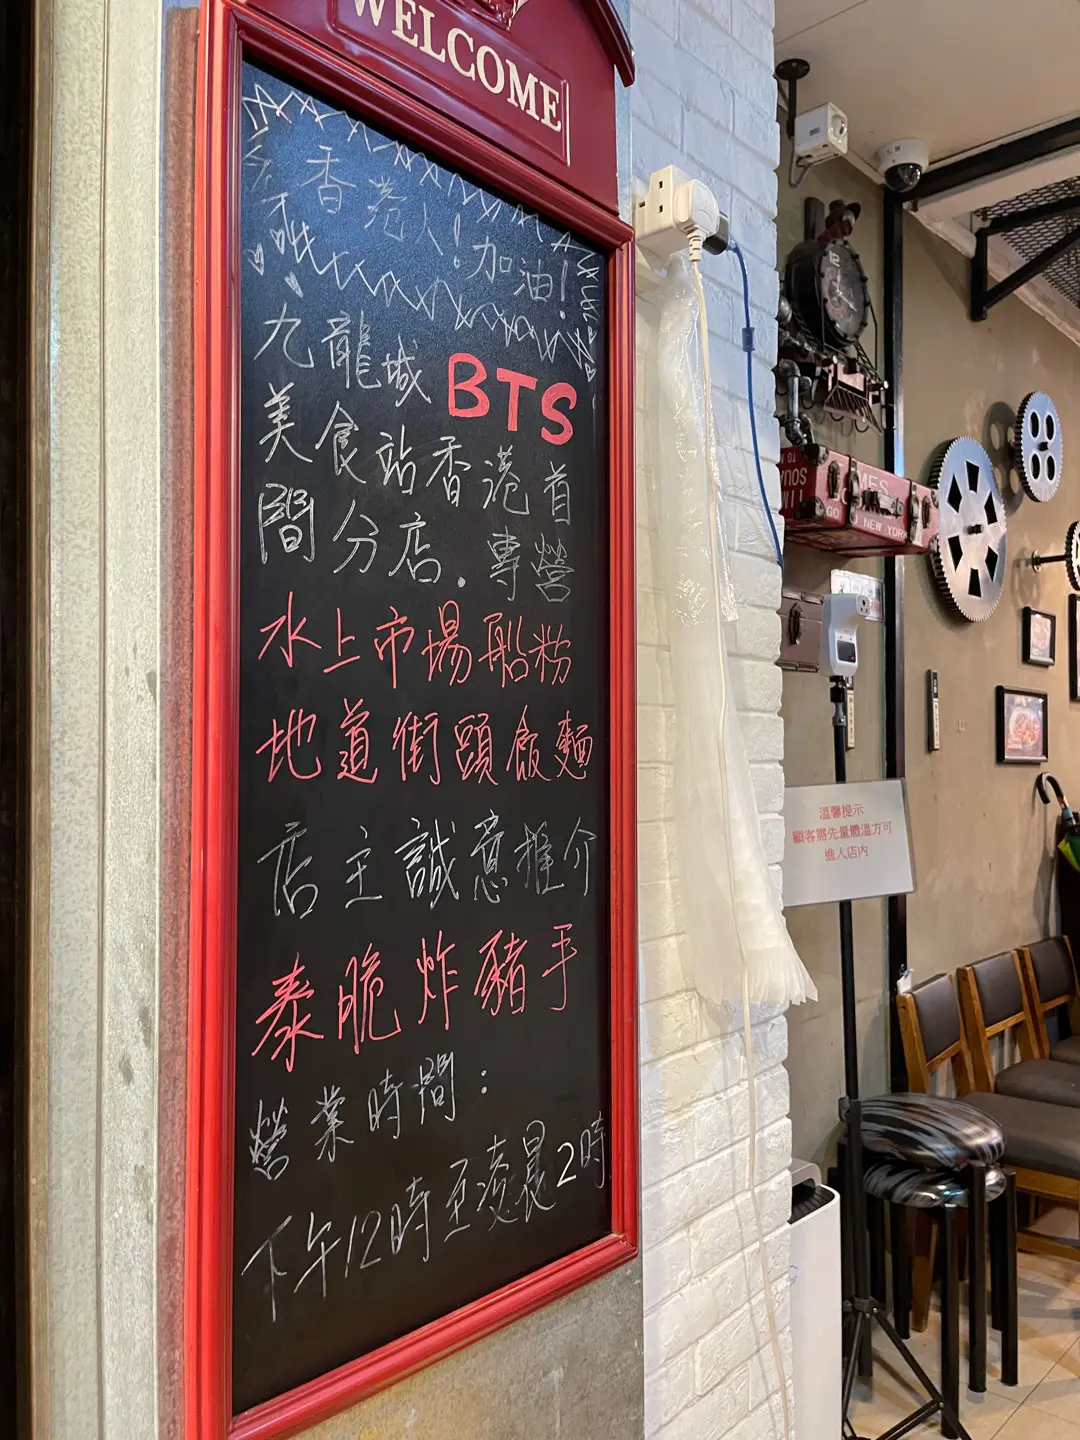 WELCOME
香港人!加油!
九龍城 BTS
美食站香港首
間分店.專營
水上市場船粉
地道街頭飯麵
店主誠意推介
泰脆炸豬手
營業時間:
下午12時至凌晨2時
溫馨提示
顧客需先量體溫方可
進入店內
NEW YORK